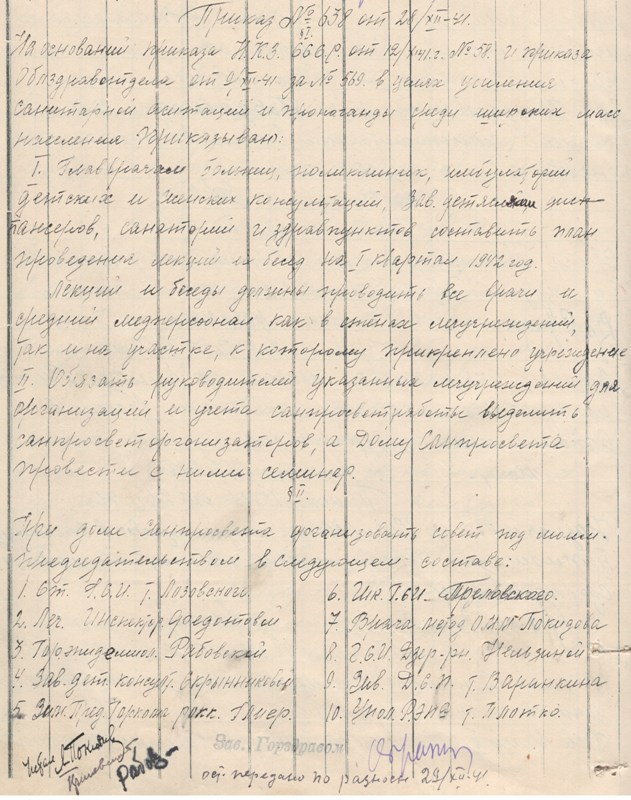 Приказ № 638 от 28/XII-41.
§ I.
На основании приказа Н.К.З. от 12/XII 41.г. № 58. и приказа
Облздравотдела от 9/XII-41 за № 569. в целях усиления
санитарной агитации и пропаганды среди широких масс
населения Приказываю:
I. Главврачам больниц, поликлиник, амбулаторий
детских и женских консультаций, Зав. детяслями дис-
пансеров, санаторий и здравпунктов составить план
проведения лекций и бесед на I квартал 1942 год.
Лекции и беседы должны проводить все врачи и
средний медперсонал как в стенах лечучреждений,
так и на участке, к которому прикреплено учреждение
II. Обязать руководителей указанных лечучреждений для
организации и учета санпросветработы выделить
санпросветорганизаторов, а Дому Санпросвета
провести с ними семинар.
§ II.
При доме санпросвета организовать совет под моим
председательством в следующем составе:
1. От т. Лозовского.
2. Леч. Инспектор Федотовой
3. Горэпидемиол. Рябовской
4. Зав. дет. консульт. Скрынниковой
5. Зам. Пред. Горкома рокк.
6. Ин.
7. Врача метод Покидова
8. Г.С.И.
9. Зав. Д.С.П. т. Варинкина
10. Упол. т. Плотко.
Зав. Горздравом
передано по разноске 29/XII-41.